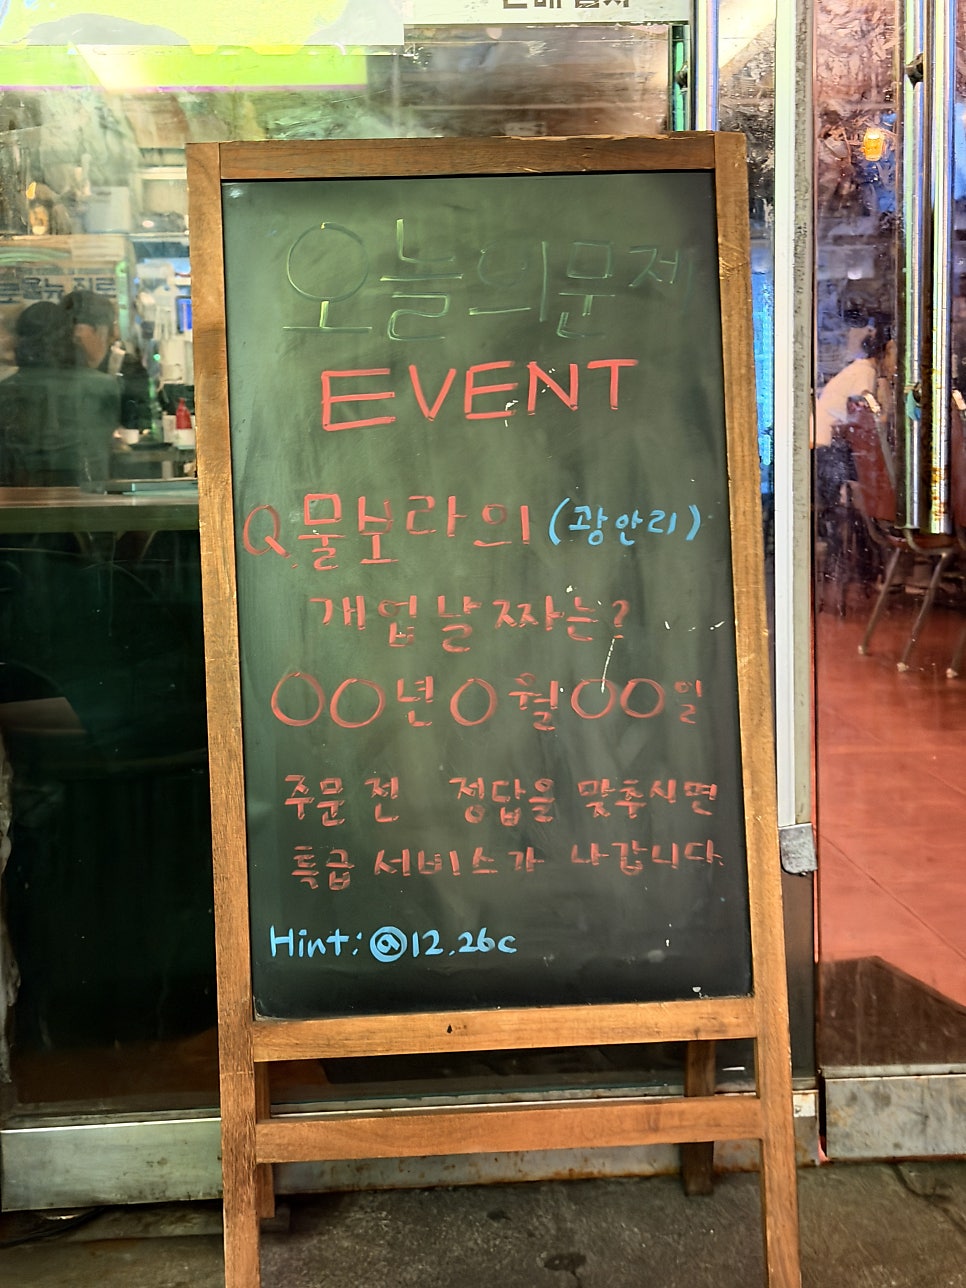 오늘의문제
EVENT
Q.물보라의 (광안리)
개업날짜는?
OO년 O월 OO일
주문 전 정답을 맞추시면
특급 서비스가 나갑니다.
Hint: @12.26c